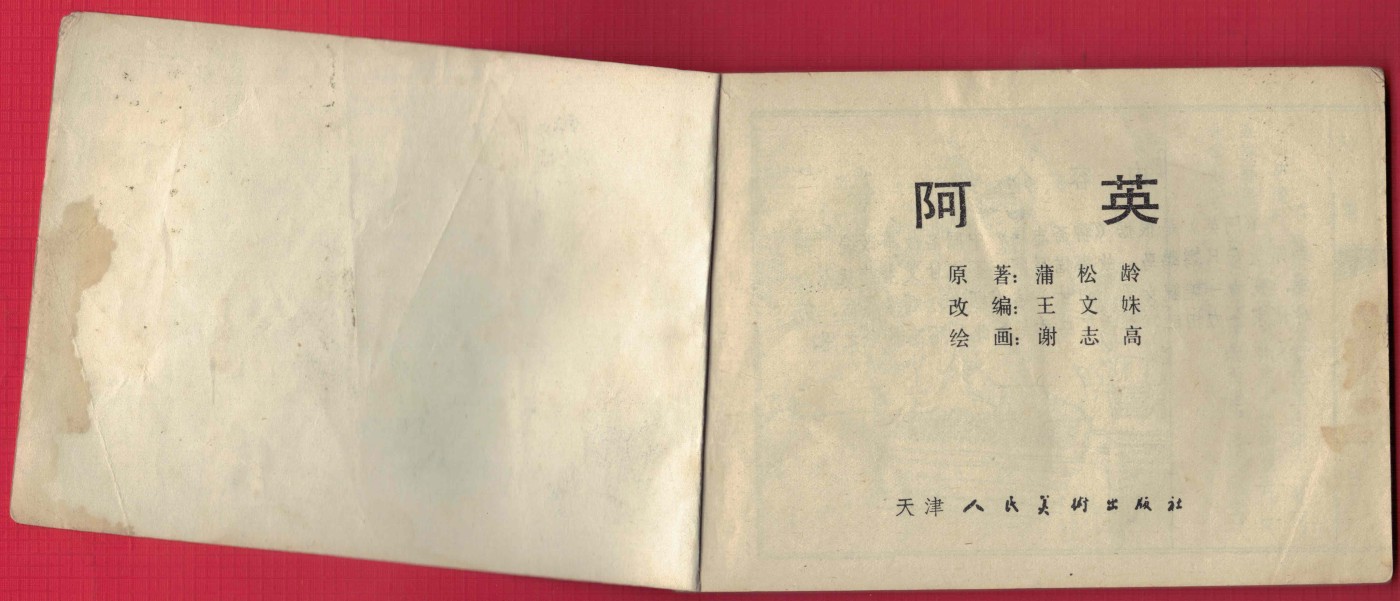 阿英
原著：蒲松龄
改编：王文姝
绘画：谢志高
天津人民美術出版社